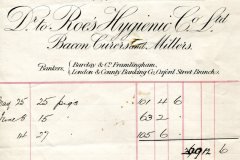 Dr. to Roe's Hygienic Co. Ltd
Bacon Curers and Millers.
Bankers, { Barclay & Co. Framlingham,
London & County Banking Co. Oxford Street Branch.
May 25 25 pigs 101 4 6
June 8 15 63 2
14 27 105 6
12 6